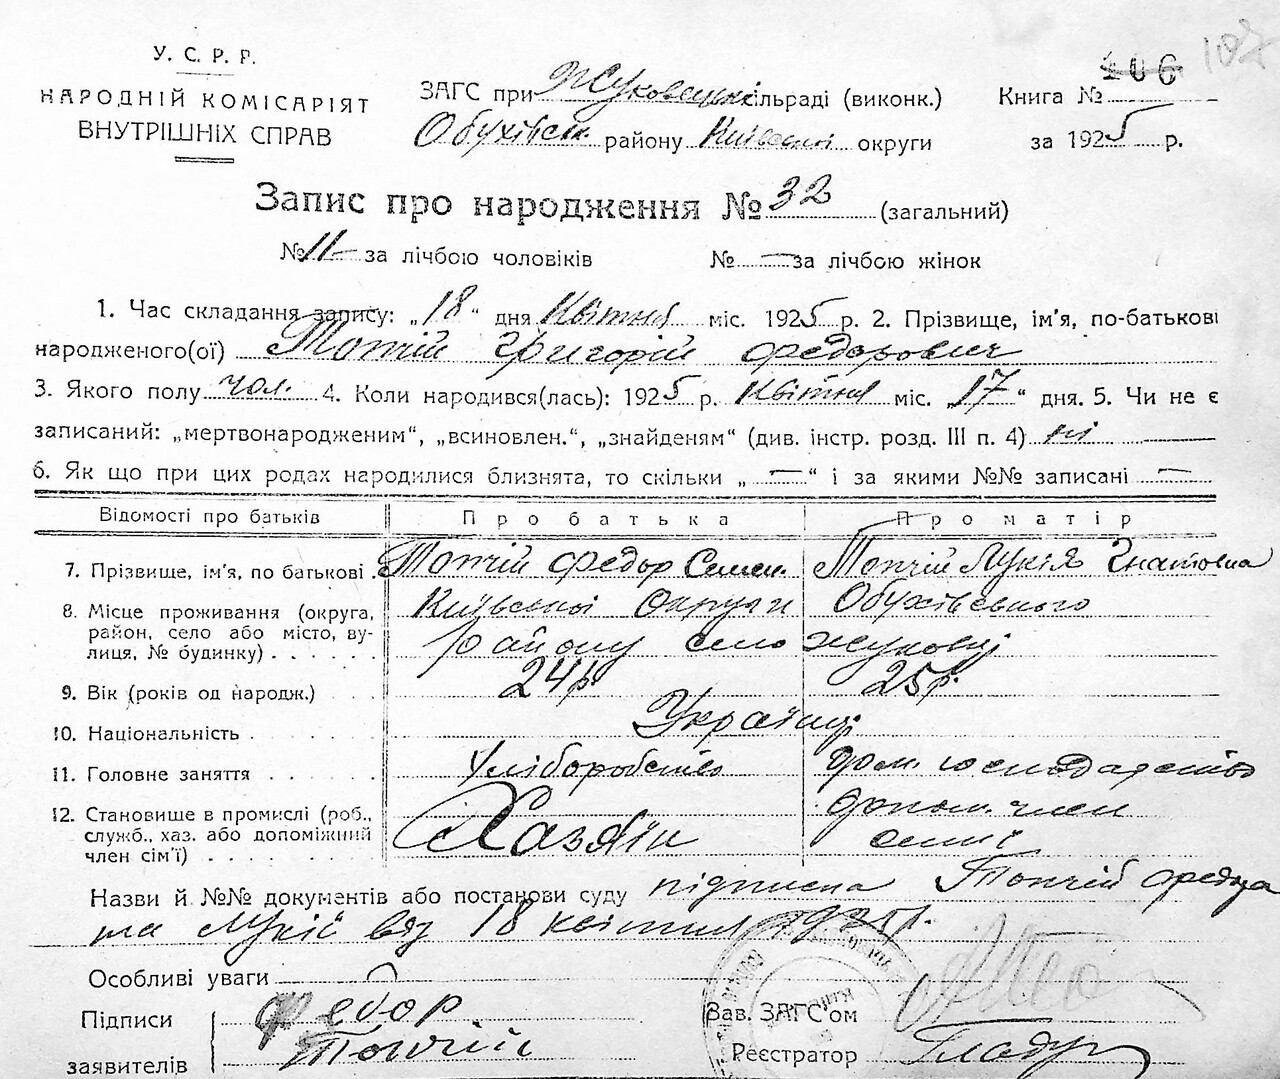 У. С. Р. Р.
НАРОДНІЙ КОМІСАРІЯТ
ВНУТРІШНІХ СПРАВ
406 107
ЗАГС при Жуковецькі сільраді (виконк.) Книга №
Обухівськ району Київської округи за 1925 р.
Запис про народження № 32 (загальний)
№ 11 – за лічбою чоловіків № — за лічбою жінок
1. Час складання запису: „18“ дня Квітня міс. 1925 р. 2. Прізвище, ім'я, по-батькові
народженого(ої) Топчій Григорій Федорович
3. Якого полу чол. 4. Коли народився(лась): 1925 р. Квітня міс. „17“ дня. 5. Чи не є
записаний: „мертвонародженим“, „всиновлен.“, „знайденям“ (див. інстр. розд. III п. 4) ні
6. Як що при цих родах народилися близнята, то скільки „—“ і за якими №№ записані —
Відомості про батьків Про батька Про матір
7. Прізвище, ім'я, по батькові Топчій Федор Семен. Топчій Лукія Гнатовна
8. Місце проживання (округа, район, село або місто, вулиця, № будинку) Київської Округи Обухівського
району село Жуковці
9. Вік (років од народж.) 24 р. 25 р.
10. Національність Українці
11. Головне заняття Хліборобство дом. господарство
12. Становище в промислі (роб., служб., хаз. або допоміжний член сім'ї) Хазяїн допом. член
семії
Назви й №№ документів або постанови суду підписка Топчій Федора
та Лукії від 18 квітня 1925 р.
Особливі уваги
Підписи заявителів Федор
Топчій
Зав. ЗАГС'ом
Реєстратор Гладун